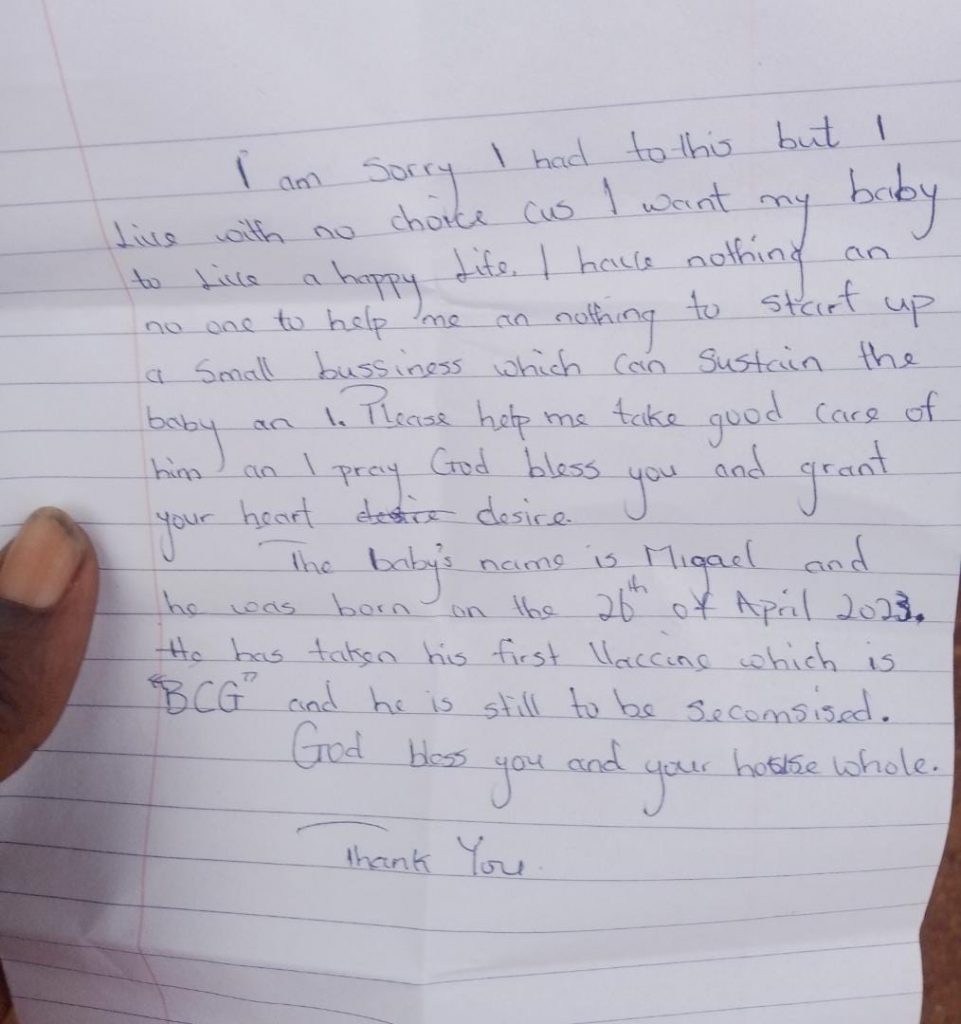 I am sorry I had to this but I
live with no choice cus I want my baby
to live a happy life. I have nothing an
no one to help me an nothing to start up
a small bussiness which can sustain the
baby an I. Please help me take good care of
him an I pray God bless you and grant
your heart desire desire.
The baby's name is Migael and
he was born on the 26th of April 2023.
He has taken his first Vaccine which is
"BCG" and he is still to be secomsised.
God bless you and your house whole.
Thank You.